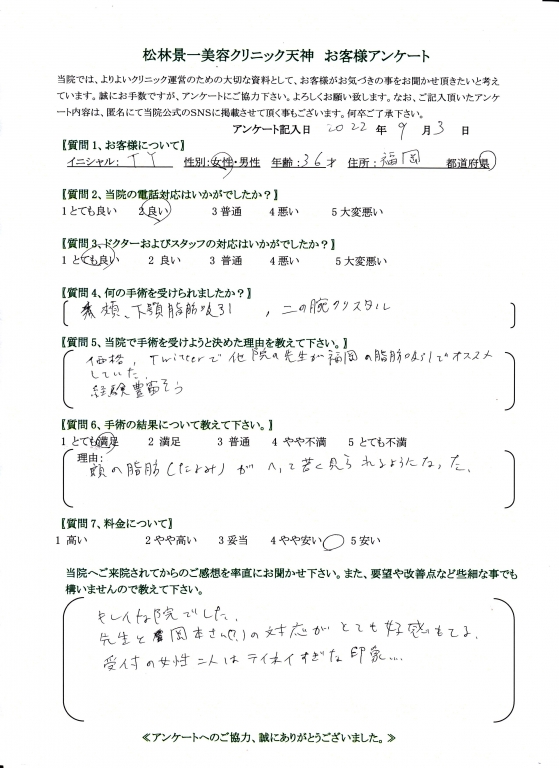 松林景一美容クリニック天神 お客様アンケート
当院では、よりよいクリニック運営のための大切な資料として、お客様がお気づきの事をお聞かせ頂きたいと考え
ています。誠にお手数ですが、アンケートにご協力下さい。よろしくお願い致します。なお、ご記入頂いたアンケ
ート内容は、匿名にて当院公式のSNSに掲載させて頂く事もございます。何卒ご了承下さい。
アンケート記入日 2022 年 9 月 3 日
【質問1、お客様について】
イニシャル: TY 性別:女性・男性 年齢:36才 住所:福岡 都道府県
【質問2、当院の電話対応はいかがでしたか?】
1とても良い 2良い 3普通 4悪い 5大変悪い
【質問3、ドクターおよびスタッフの対応はいかがでしたか?】
1とても良い 2 良い 3 普通 4悪い 5大変悪い
【質問4、何の手術を受けられましたか?】
頬、下顎脂肪吸引 , 二の腕クリスタル
【質問5、当院で手術を受けようと決めた理由を教えて下さい。】
価格, Twitterで他院の先生が福岡の脂肪吸引でオススメ
していた.
経験豊富そう
【質問6、手術の結果について教えて下さい。】
1 とても満足 2 満足 3 普通 4 やや不満 5 とても不満
理由:
頬の脂肪(たるみ)が へって若く見られるようになった.
【質問7、料金について】
1 高い 2やや高い 3妥当 4やや安い 5安い
当院へご来院されてからのご感想を率直にお聞かせ下さい。また、要望や改善点など些細な事でも
構いませんので教えて下さい。
キレイな院でした.
先生と 岡本さん(?)の対応がとても好感もてる.
受付の女性二人はテイネイすぎな印象...
≪アンケートへのご協力、誠にありがとうございました。≫